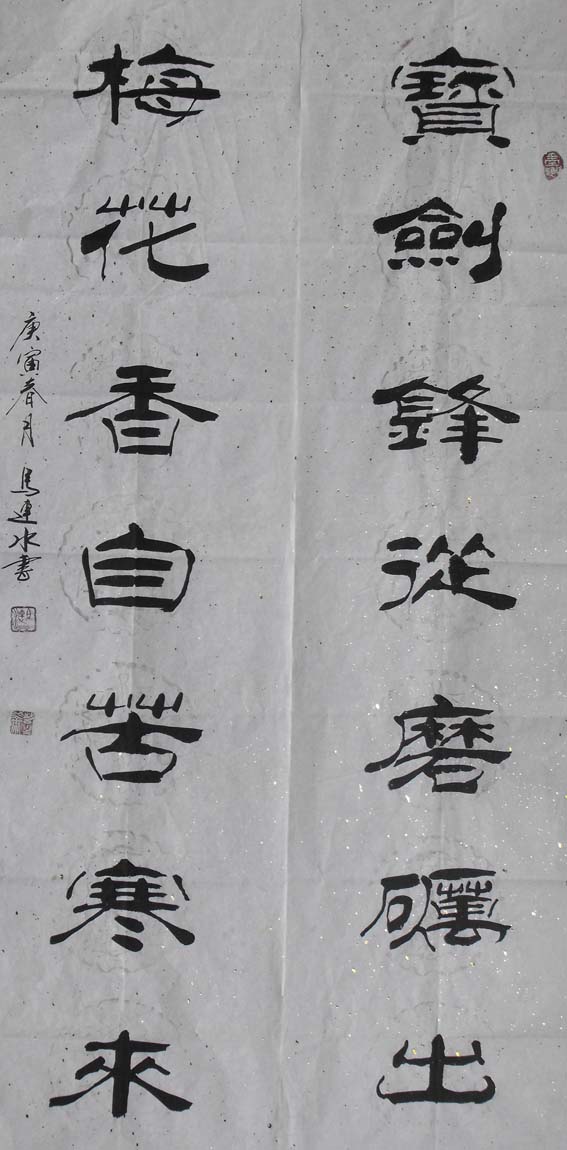 寶劍鋒從磨礪出
梅花香自苦寒來
庚寅春月 馬連水書